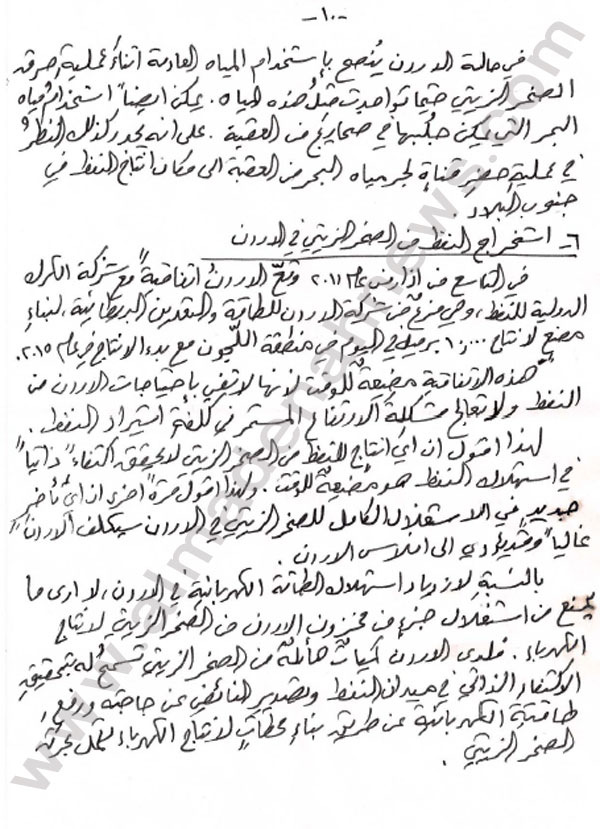 -١٠-
في حالة الاردن يُنصح بإستخدام المياه العادمة اثناء عملية حرق
الصخر الزيتي حيثما تواجدت مثل هذه المياه. يمكن ايضاً استخدام مياه
البحر التي يمكن جلبها في صهاريج من العقبة. على انه يجدر كذلك النظر
في عملية حفر قناةٍ لجر مياه البحر من العقبة الى مكان انتاج النفط في
جنوب البلاد.
٦- استخراج النفط من الصخر الزيتي في الاردن
في التاسع من اذار من عام ٢٠١١ وقّع الاردن اتفاقيةً مع شركة الكرك
الدولية للنفط، وهي فرع من شركة الاردن للطاقة والتعدين البريطانية، لبناء
مصنع لانتاج ١٠,٠٠٠ برميل في اليوم في منطقة اللّجون مع بدء الانتاج في عام ٢٠١٥.
هذه الاتفاقية مضيعة للوقت لأنها لا تفي بإحتياجات الاردن من
النفط ولا تعالج مشكلة الارتفاع المستمر في كلفة استيراد النفط.
لهذا اقول ان اي انتاج للنفط من الصخر الزيتي لا يحقق اكتفاءً ذاتياً
في استهلاك النفط هو مضيعة للوقت. ولهذا اقول مرةً اخرى ان اي تأخير
جديد في الاستغلال الكامل للصخر الزيتي في الاردن سيكلف الاردن
غالياً وقد يؤدي الى افلاس الاردن.
بالنسبة لازدياد استهلاك الطاقة الكهربائية في الاردن، لا ارى ما
يمنع من استغلال جزء من مخزون الاردن من الصخر الزيتي لانتاج
الكهرباء. فلدى الاردن كميات هائلة من الصخر الزيتي تسمح له بتحقيق
الاكتفاء الذاتي في ميدان النفط وتصدير الفائض عن حاجته ورفع
طاقته الكهربائية عن طريق بناء محطات لانتاج الكهرباء تعمل بحرق
الصخر الزيتي.
www.almadenahnews.com